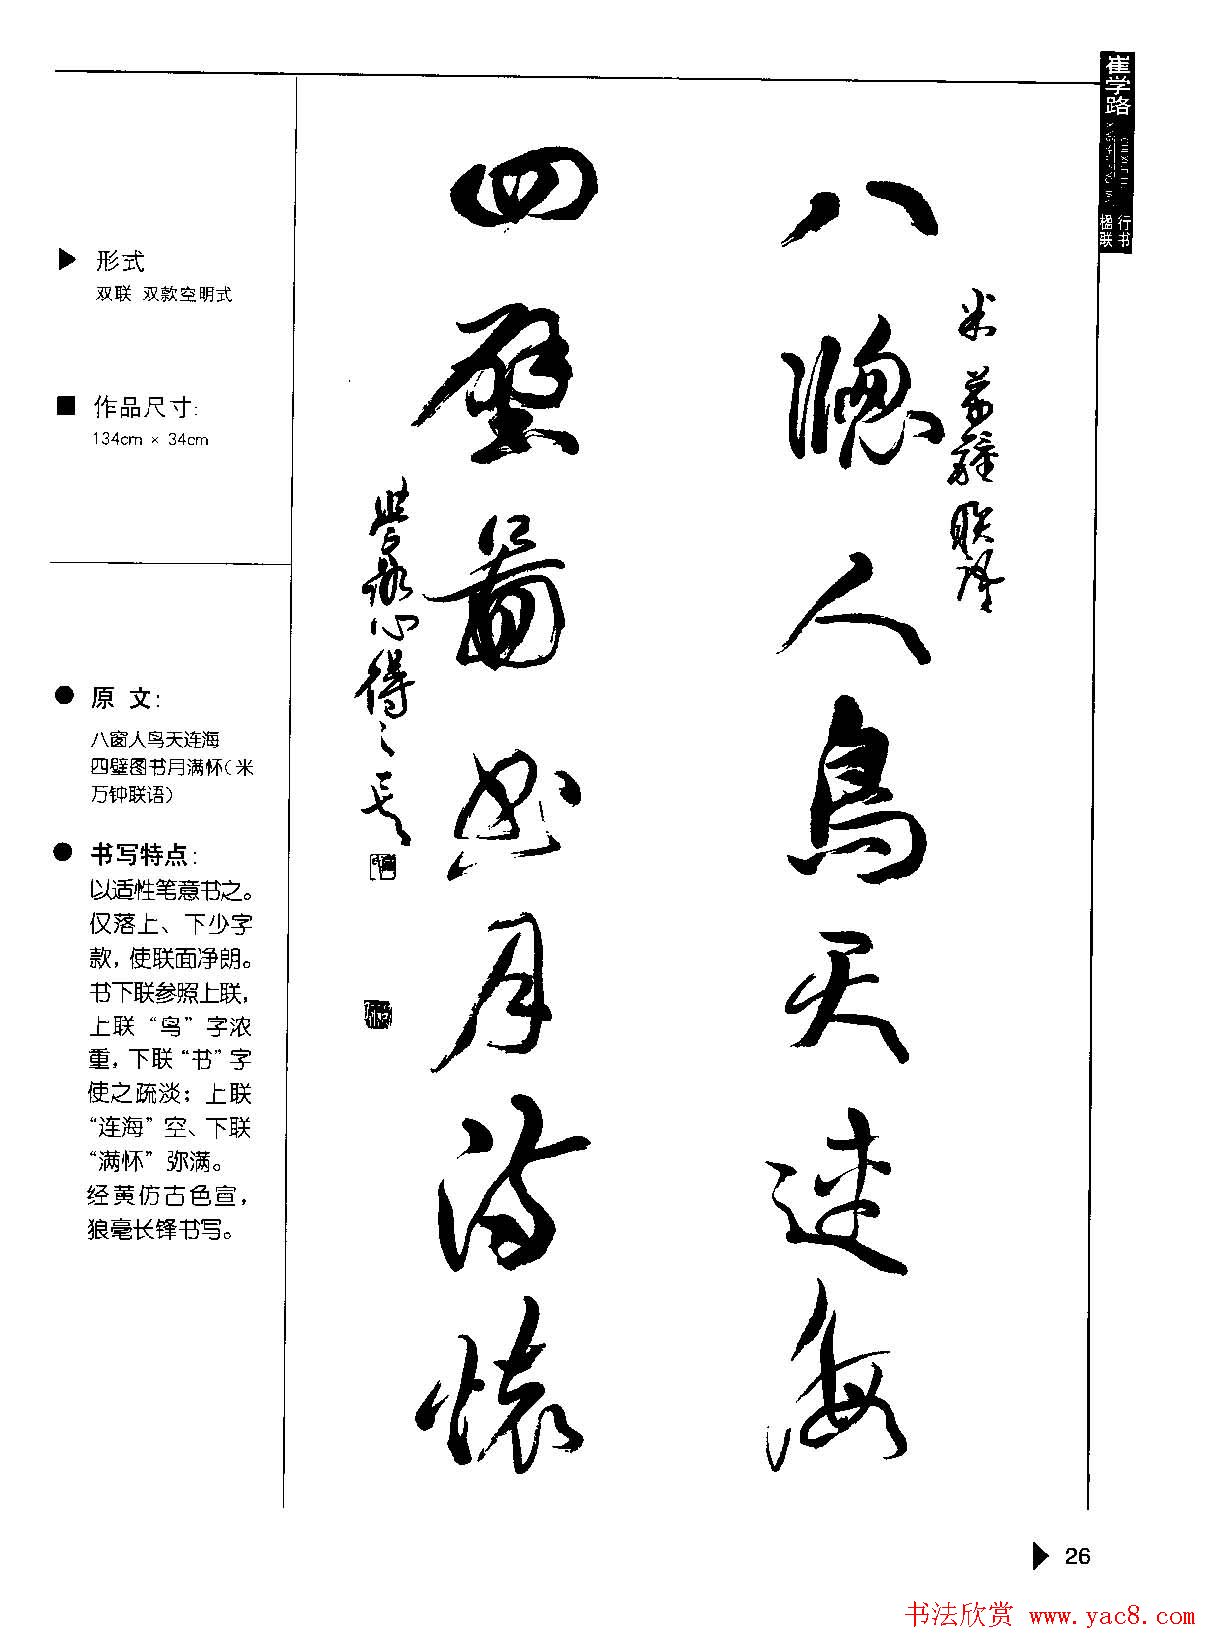 崔学路
行书
楹联
▶ 形式
双联 双款空明式
■ 作品尺寸:
134cm × 34cm
● 原 文:
八窗人鸟天连海
四壁图书月满怀(米
万钟联语)
● 书写特点:
以适性笔意书之。
仅落上、下少字
款,使联面净朗。
书下联参照上联,
上联“鸟”字浓
重,下联“书”字
使之疏淡;上联
“连海”空、下联
“满怀”弥满。
经黄仿古色宣,
狼毫长锋书写。
八窗人鳥天連海
米萬鍾联語
四壁圖書月滿懷
▶ 26
书法欣赏 www.yac8.com